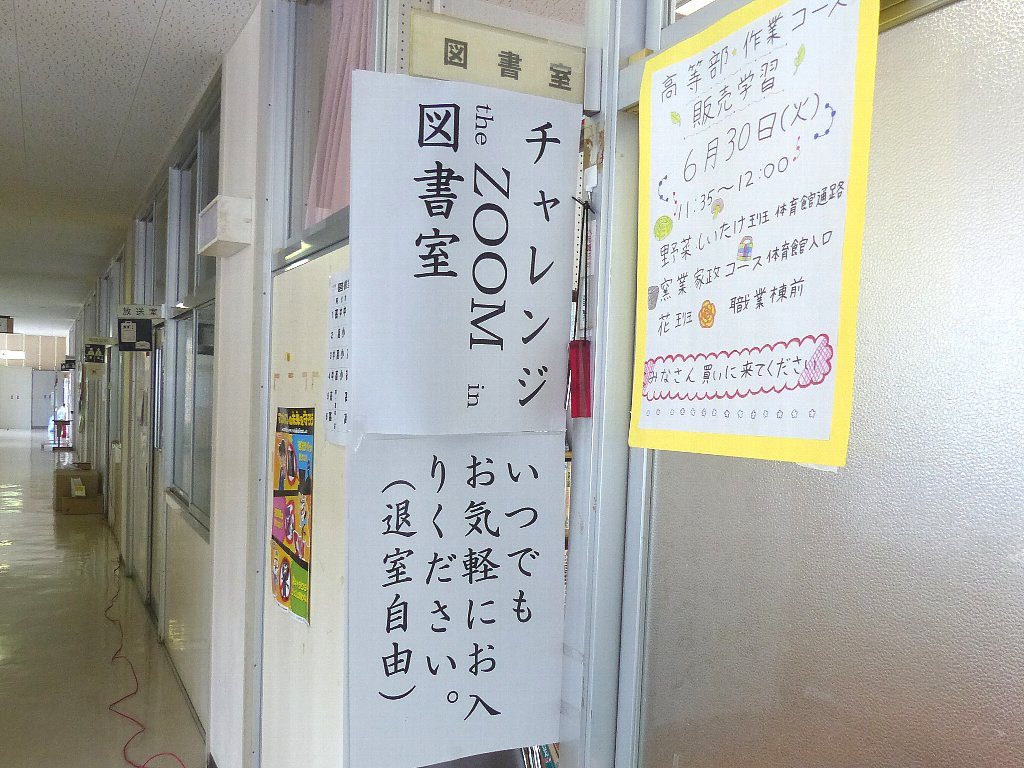 図書室
チャレンジ
the ZOOM in
図書室
いつでも
お気軽にお入
りください。
（退室自由）
高等部・作業コース
販売学習
6月30日(火)
11:35～12:00
野菜・しいたけ班 体育館通路
窯業 家政コース 体育館入口
花班 職業棟前
みなさん買いに来てください
放送室